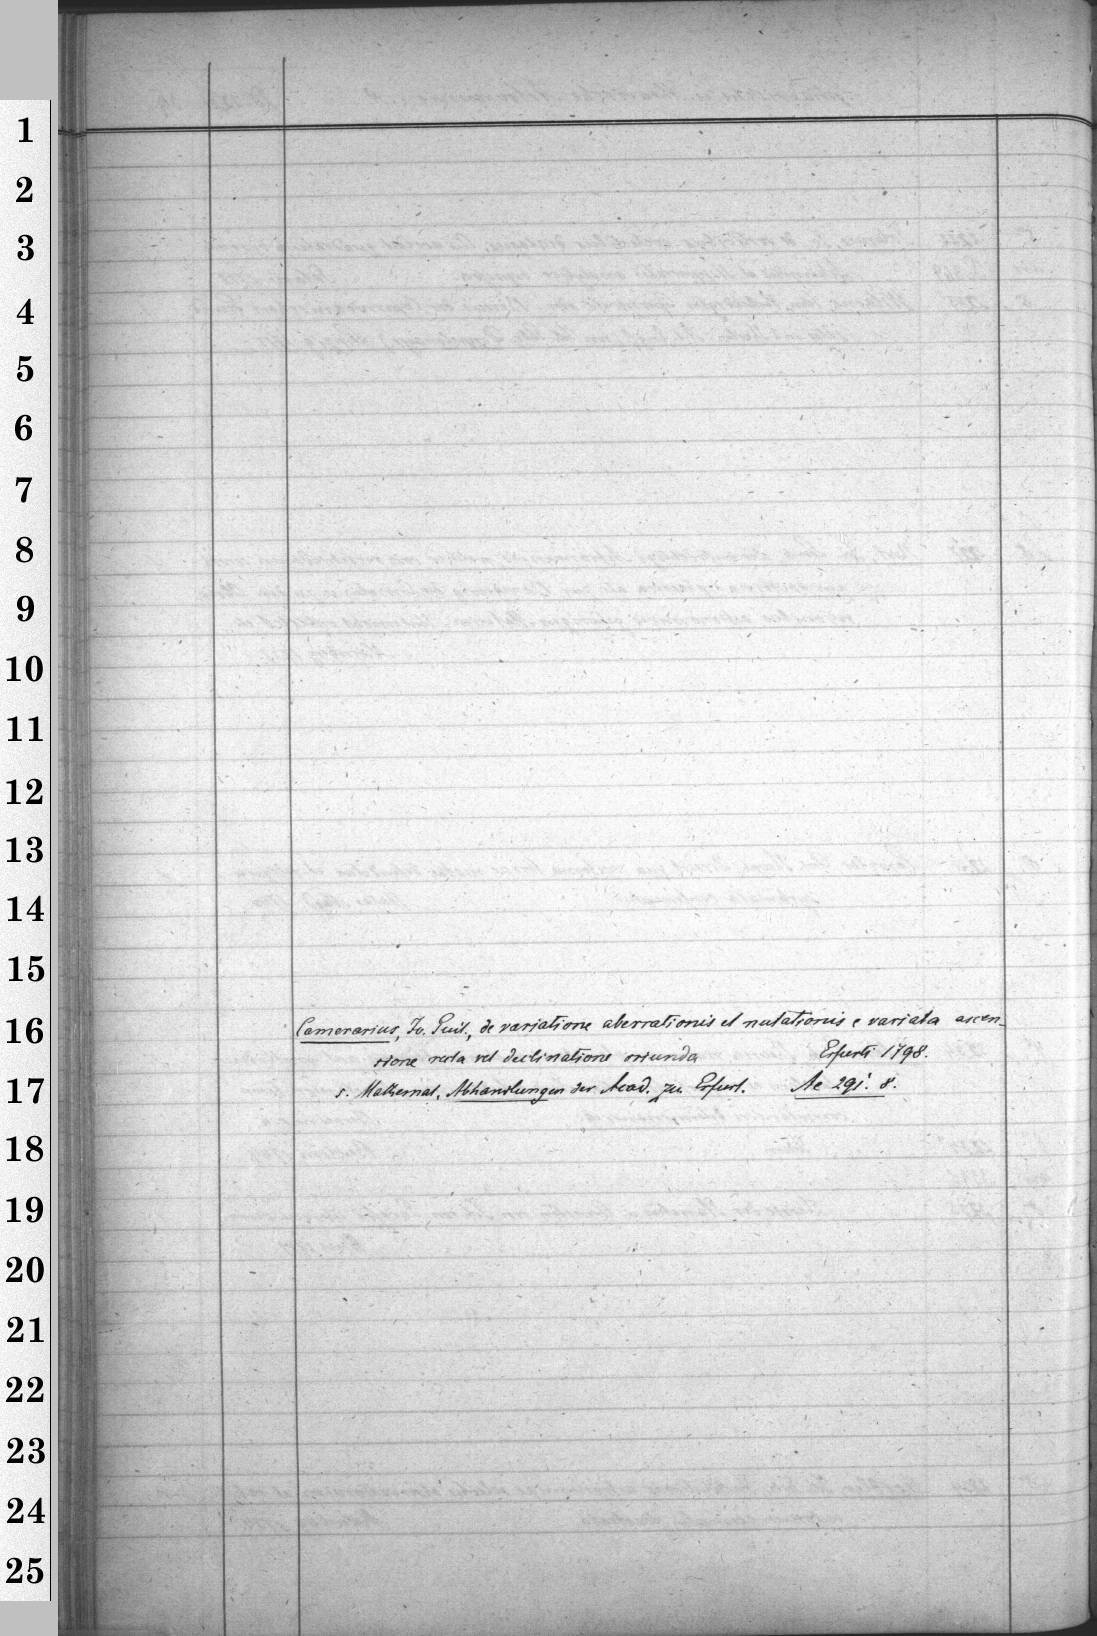 1
2
3
4
5
6
7
8
9
10
11
12
13
14
15
16
Camerarius, Jo. Guil., de variatione aberrationis et nutationis e variata ascen-
sione recta vel declinatione oriunda Erfurti 1798.
17
s. Mathemat. Abhandlungen der Acad. zu Erfurt. Ae 291. 8.
18
19
20
21
22
23
24
25